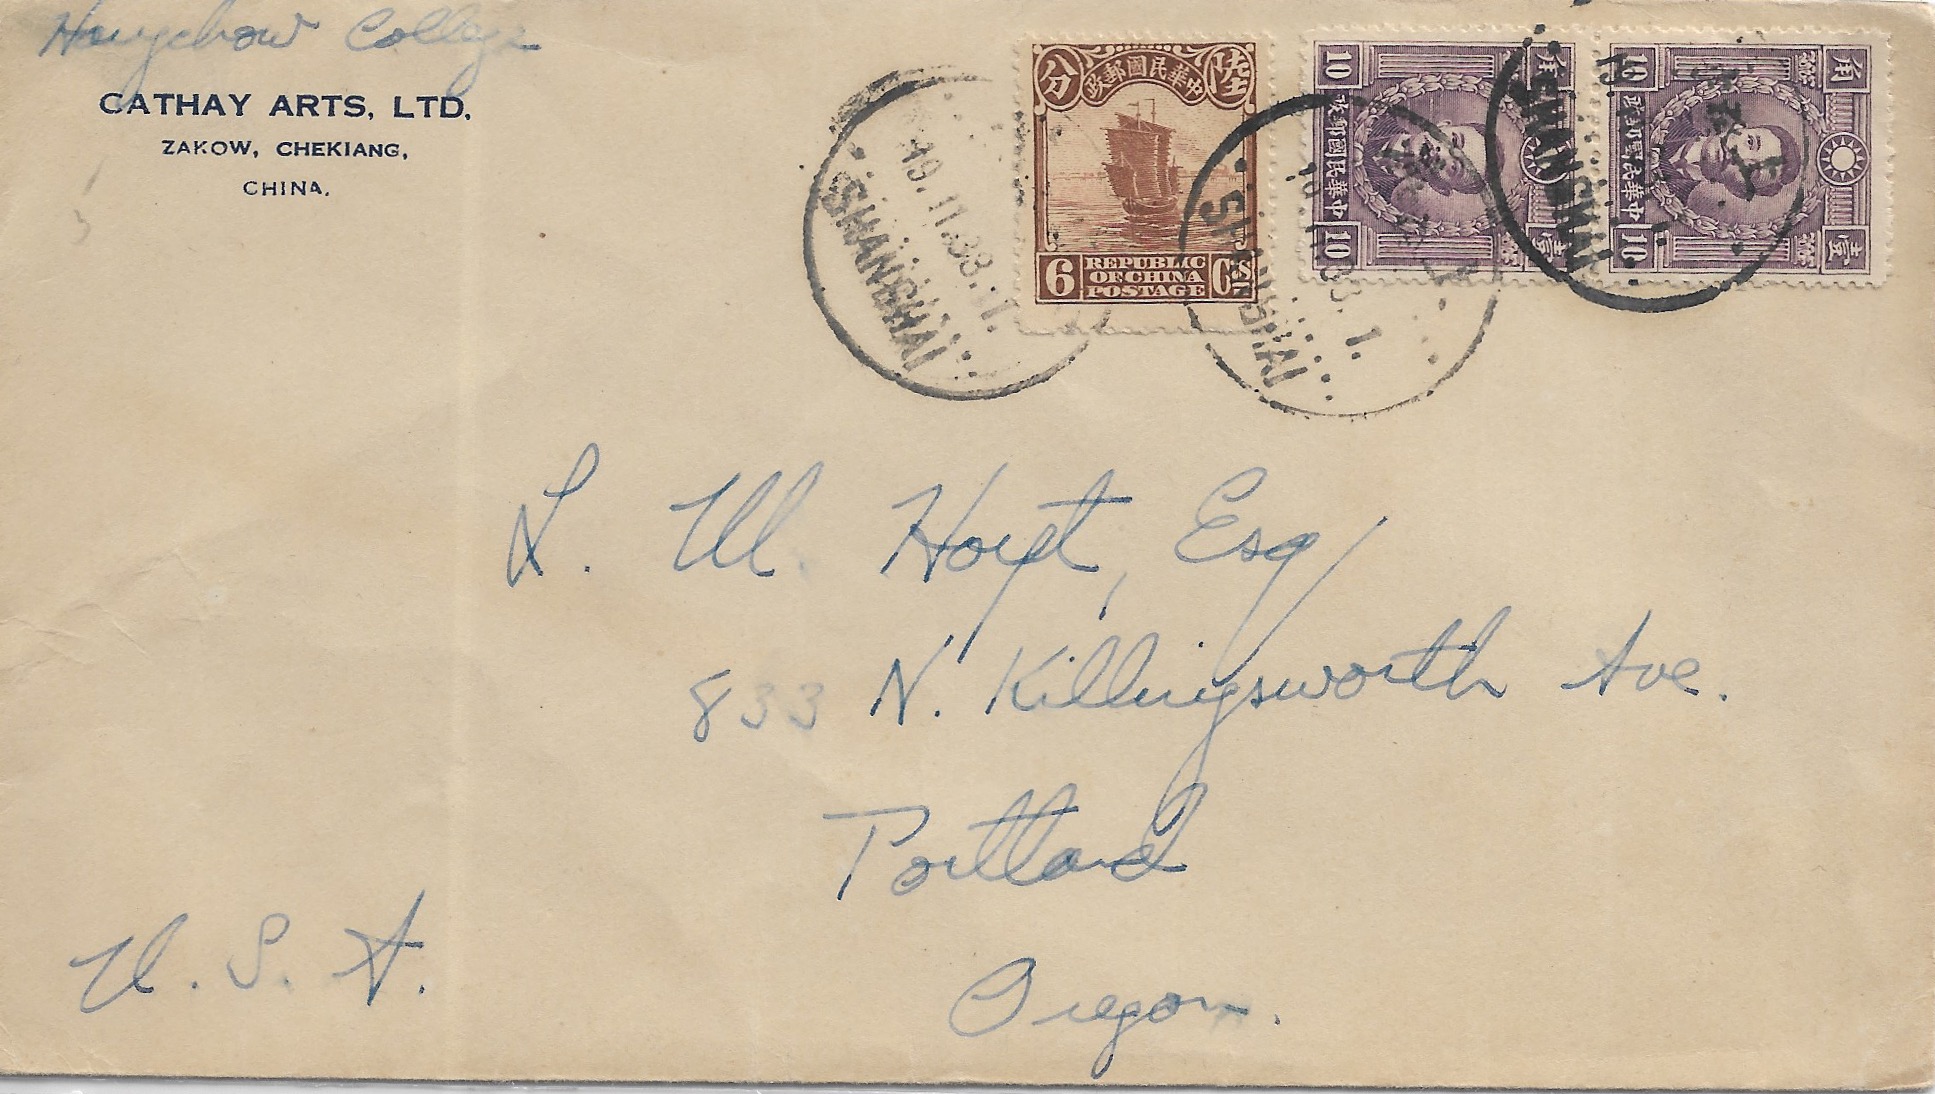 Hangchow College
CATHAY ARTS, LTD.
ZAKOW, CHEKIANG,
CHINA.
陸 政郵國民華中 分
6 REPUBLIC OF CHINA POSTAGE Cts
10 角 10
中華民國郵政
10 壹 10
角
中華民國郵政
10 壹
19.11.38.1.
SHANGHAI
SHANGHAI
SHANGHAI
L. W. Hoyt, Esq
833 N. Killingsworth Ave.
Portland
Oregon.
U. S. A.